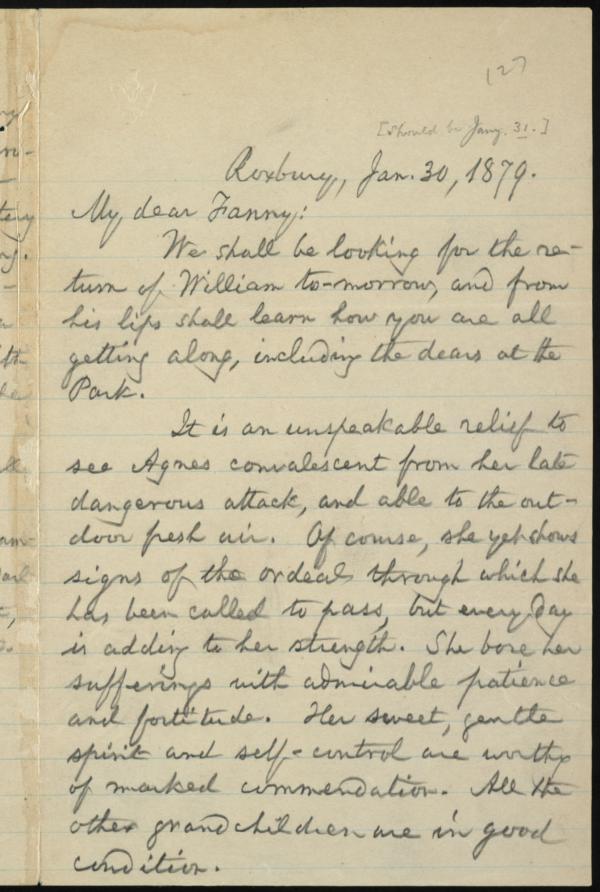 127
[Should be Jany. 31.]
Roxbury, Jan. 30, 1879.
My dear Fanny:
We shall be looking for the re-
turn of William to-morrow, and from
his lips shall learn how you are all
getting along, including the dears at the
Park.
It is an unspeakable relief to
see Agnes convalescent from her late
dangerous attack, and able to the out-
door fresh air. Of course, she yet shows
signs of the ordeal through which she
has been called to pass, but every day
is adding to her strength. She bore her
sufferings with admirable patience
and fortitude. Her sweet, gentle
spirit and self-control are worthy
of marked commendation. All the
other grandchildren are in good
condition.